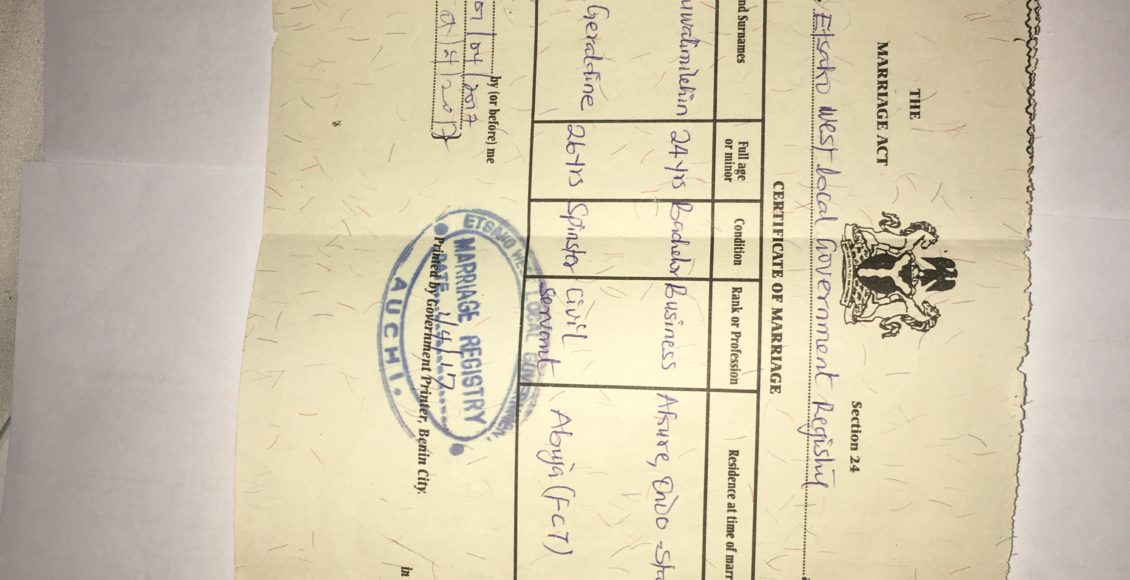 THE
MARRIAGE ACT
Section 24
Etsako West Local Government Registry
CERTIFICATE OF MARRIAGE
nd Surnames Full age or minor Condition Rank or Profession Residence at time of marr
24yrs Bachelor Business Akure, Ondo Sta
Geraldine 26yrs Spinster Civil servant Abuja (FCT)
by (or before) me
04/2017
4/2017
in
ETSAKO WEST LOCAL GOVERNMENT.
MARRIAGE REGISTRY
DATE 4/4/17
AUCHI.
Printed by Government Printer, Benin City.